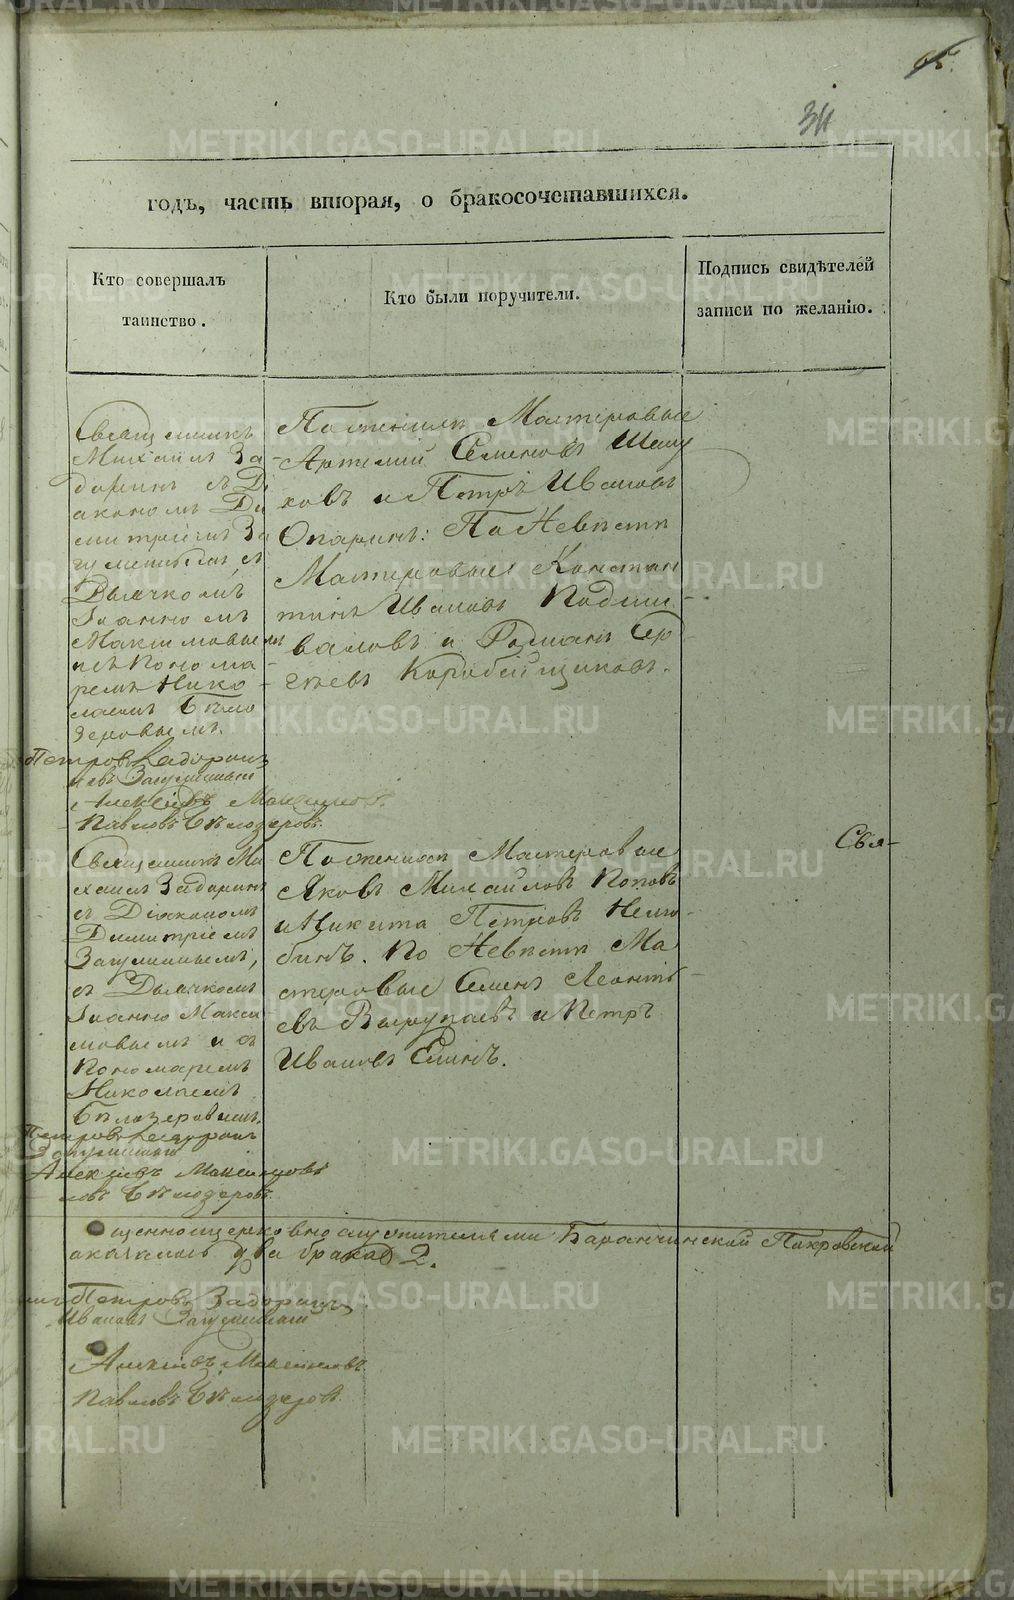 65.
34
годъ, часть вторая, о бракосочетавшихся.
Кто совершалъ
таинство.
Кто были поручители.
Подпись свидѣтелей
записи по желанію.
Священникъ
Михаилъ За
доринъ съ Ді
акономъ Ди
митріемъ За
гуменнымъ, съ
Дьячкомъ
Іоанномъ
Максимовымъ
и съ Понома
ремъ Нико
лаемъ Бѣло
зеровымъ.
Петровъ Задоринъ
Александръ Максимовъ
Павловъ Бѣлозеровъ.
По женихѣ Мастеровые
Артемій Семеновъ Шаму
ховъ и Петръ Ивановъ
Опаринъ: По Невѣстѣ
Мастеровые Констан
тинъ Ивановъ Подши
валовъ и Романъ Сер
гѣевъ Коробейщиковъ.
Священникъ Ми
хаилъ Задоринъ
съ Діакономъ
Димитріемъ
Загуменнымъ,
съ Дьячкомъ
Іоанномъ Макси
мовымъ и съ
Пономаремъ
Николаемъ
Бѣлозеровымъ.
Петровъ Задоринъ
Максимовъ
Бѣлозеровъ.
По женихѣ Мастеровые
Яковъ Михайловъ Поповъ
и Никита Петровъ Нелю
бинъ. По Невѣстѣ Ма
стеровые Семенъ Леонть
евъ Вырупаевъ и Петръ
Ивановъ Елинъ.
Свя-
щенноцерковнослужителями Баранчинской Покровской
оказалось два брака 2.
Петровъ Задоринъ
Ивановъ Загуменный
Максимовъ
Павловъ Бѣлозеровъ.
METRIKI.GASO-URAL.RU